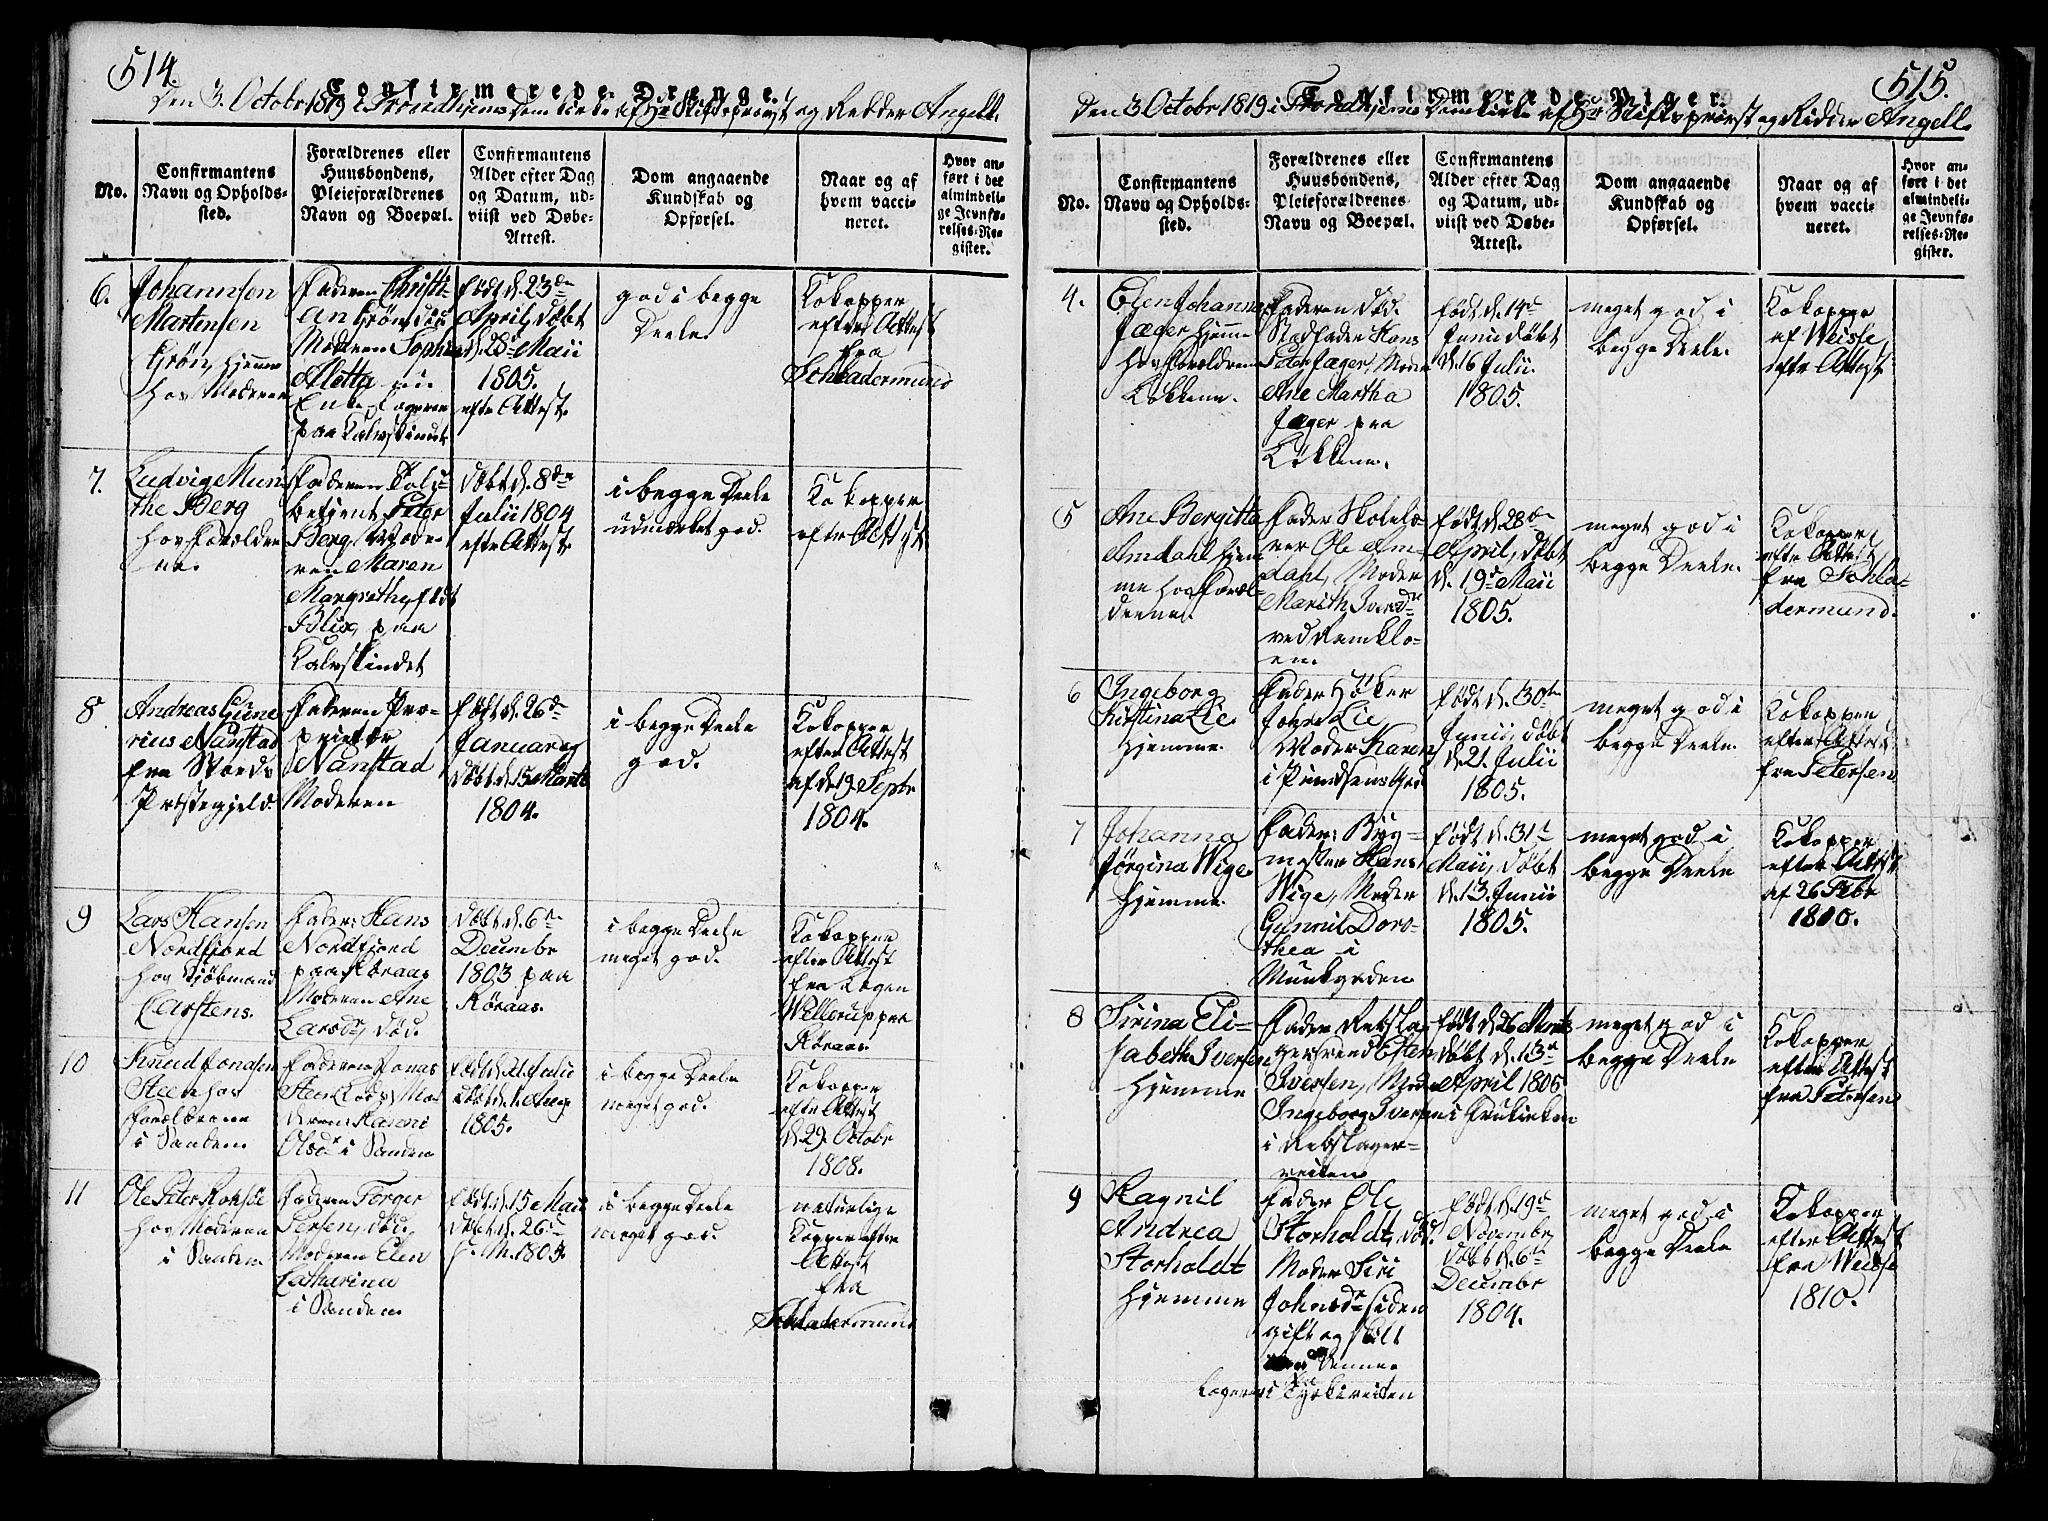 514.
Confirmerede Drenge.
Den 3. Octobr 1819 i Trondhjems Domkirke af Hr Stiftsprovst og Ridder Angell.
No.
Confirmantens
Navn og Opholds-
sted.
Forældrenes eller
Huusbondens,
Pleieforældrenes
Navn og Boepæl.
Confirmantens
Alder efter Dag
og Datum, ud-
viist ved Døbe-
Attest.
Dom angaaende
Kundskab og
Opførsel.
Naar og af
hvem vacci-
neret.
Hvor an-
ført i det
almindeli-
ge Jevnfø-
relses-Re-
gister.
6.
Johannsen
Martinsen
Grøn, hjemme
hos Moderen
Faderen Christi-
an Grøn, død
Moderen Sophia
Aletta
Enke
paa Kalvskindet
født d. 23de
April, døbt
d. 28 Maii
1805.
efter Attest.
god i begge
Deele.
Kokopper
efter Attest
fra
Schladermund
7.
Ludvig Mun-
the Berg
hos Forældre-
ne.
Faderen
betjent Peter
Berg, Mode-
ren Maren
Margrethe, født
Blix, paa
Kalvskindet
døbt d. 8de
Julii 1804
efter Attest
i begge Deele
udmærket god.
Kokopper
efter Attest
8
Andreas Gune-
rius Nanstad
fra Stords
Præstegjeld.
Faderen Pro-
prietær
Nanstad
Moderen
født d. 26de
Januar og
døbt d. 15 Marts
1804.
i begge Deele
god.
Kokopper
efter Attest
af de 19 Septr
1804.
9
Lars Hansen
Nordfjord
hos Kjøbmand
Carstens.
Fader: Hans
Nordfjord
paa Røraas
Moderen Ane
Larsdr, død.
døbt d. 6te
Decembr
1803 paa
Røraas.
i begge Deele
meget god.
Kokopper
efter Attest
fra Lægen
Wellerup paa
Røraas.
10
Knud Jonsen
Steen hos
Forældrene
i Sanden.
Faderen Jonas
Steen Mo-
deren Ranni
Olsdr i Sanden
født d. 21 Julii
døbt d. 1 Aug
1805.
i begge Deele
meget god.
Kokopper
efter Attest
d. 29. Octobr
1808.
11
Ole Peter
hos Moderen
i Sanden.
Faderen Torger
død,
Moderen Elen
Catharina
i Sanden.
født d. 15 Maii
døbt d. 26de
s. M. 1805.
i begge Deele
meget god.
naturlige
Kopper efter
Attest
fra
Schladermund
515.
Confirmerede Piger.
Den 3 Octobr 1819 i Trondhjems Domkirke af Hr Stiftsprovst og Ridder Angell.
No.
Confirmantens
Navn og Opholds-
sted.
Forældrenes eller
Huusbondens,
Pleieforældrenes
Navn og Boepæl.
Confirmantens
Alder efter Dag
og Datum, ud-
viist ved Døbe-
Attest.
Dom angaaende
Kundskab og
Opførsel.
Naar og af
hvem vacci-
neret.
Hvor an-
ført i det
almindeli-
ge Jevnfø-
relses-Re-
gister.
4.
Elen Johanna
Jæger hjemme
hos Forældrene
Løkkene.
Faderen død.
Stedfader Hans
Peter Jæger, Moder
Ane Martha
Jæger paa
Løkkene.
født d. 14de
Junii døbt
d. 16 Julii
1805.
meget god i
begge Deele.
Kokopper
af Weisse,
efter Attest
5
Ane Bergitta
Amdahl hjem-
me hos Foræl-
drene.
Fader Skolelæ-
rer Ole Am-
dahl, Moder
Marith Iversdr
ved Ramklo-
en.
født d. 28de
April, døbt
d. 19de Maii
1805.
meget god i
begge Deele.
Kokopper
efter Attest
fra Schla-
dermund.
6
Ingeborg
Kirstina Lie.
hjemme.
Fader Høker
John Lie,
Moder Karen
i
født d. 30te
Junii, døbt
d. 21. Julii
1805.
meget god i
begge Deele.
Kokopper
efter Attest
fra Petersen
7
Johanna
Jørgina Wige.
hjemme.
Fader: Byg-
mester Hans
Wige, Moder
Gunnil Doro-
thea i
Munkgaden
født d. 31te
Maii, døbt
d. 13. Junii
1805.
meget god i
begge Deele
Kokopper
efter Attest
af 26 Febr
1810.
8
Sirina Eli-
sabeth Iversen
hjemme
Fader Rebsla-
gersvend Esten
Iversen, Moder
Ingeborg Iversen
i Rebslager-
veiten
født d. 26 Marts
døbt d. 13de
April 1805
i Fruekirken
meget god i
begge Deele
Kokopper
efter Attest
fra Petersen
9
Ragnil
Andrea
Storholdt
hjemme
Fader Ole
Storholdt, død.
Moder Siri
Johnsdr siden
gift og skilt
Logerer i Tyskveiten
født d. 19de
Novembr,
døbt d. 6te
Decembr
1804.
meget god i
begge Deele
Kokopper
efter Attest
fra Weisse
1810.